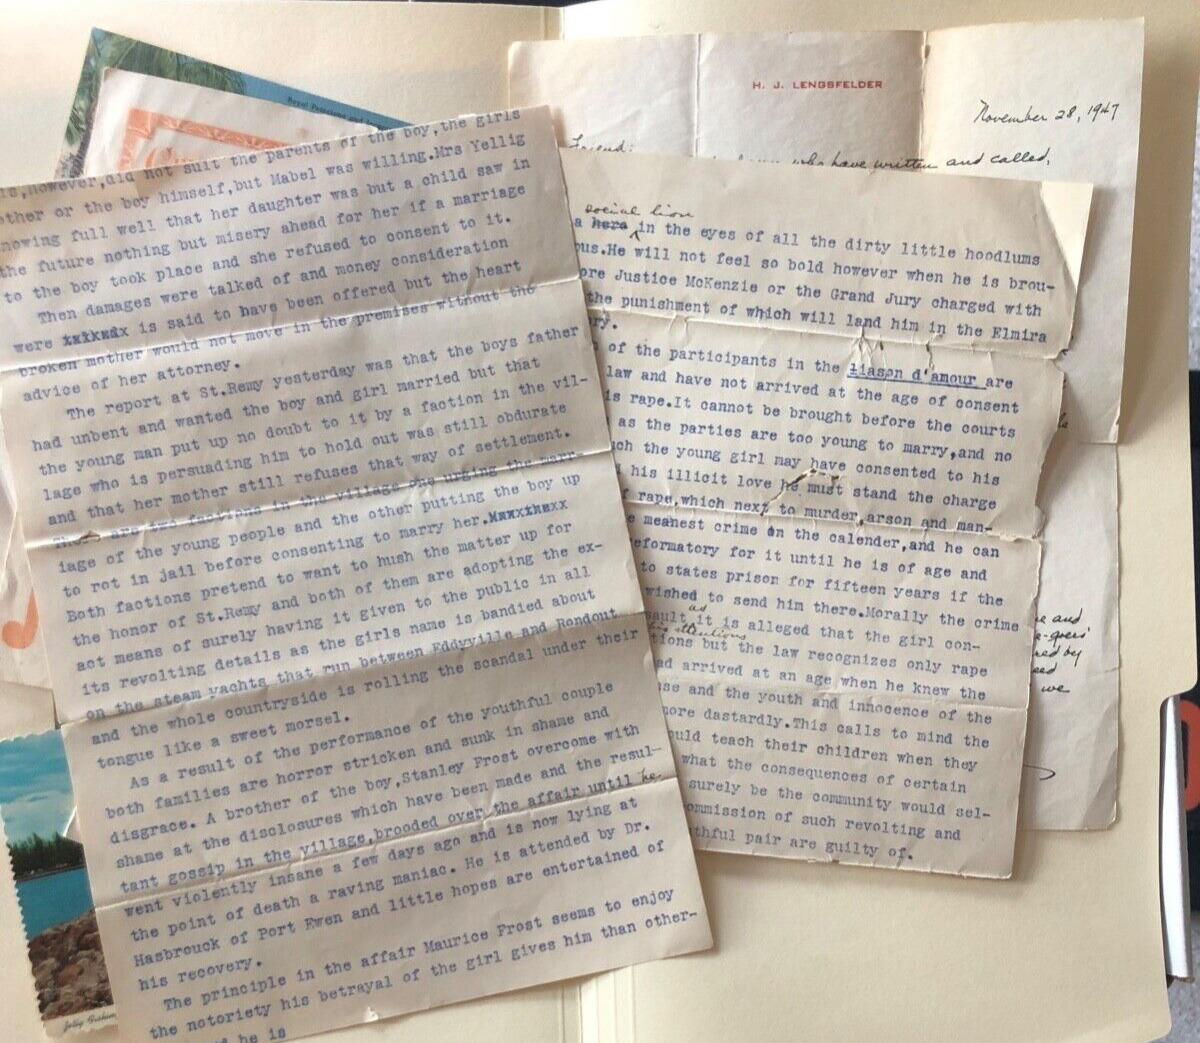 Royal Poinciana and
H. J. LENGSFELDER
November 28, 1947
Friend:
who have written and called,
however,did not suit the parents of the boy,the girls
other or the boy himself,but Mabel was willing.Mrs Yellig
nowing full well that her daughter was but a child saw in
the future nothing but misery ahead for her if a marriage
to the boy took place and she refused to consent to it.
Then damages were talked of and money consideration
were is said to have been offered but the heart
broken mother would not move in the premises without the
advice of her attorney.
The report at St.Remy yesterday was that the boys father
had unbent and wanted the boy and girl married but that
the young man put up no doubt to it by a faction in the vil-
lage who is persuading him to hold out was still obdurate
and that her mother still refuses that way of settlement.
There are two factions in the village one urging the marr-
iage of the young people and the other putting the boy up
to rot in jail before consenting to marry her.
Both factions pretend to want to hush the matter up for
the honor of St.Remy and both of them are adopting the ex-
act means of surely having it given to the public in all
its revolting details as the girls name is bandied about
on the steam yachts that run between Eddyville and Rondout
and the whole countryside is rolling the scandal under their
tongue like a sweet morsel.
As a result of the performance of the youthful couple
both families are horror stricken and sunk in shame and
disgrace. A brother of the boy,Stanley Frost overcome with
shame at the disclosures which have been made and the resul-
tant gossip in the village,brooded over the affair until he
went violently insane a few days ago and is now lying at
the point of death a raving maniac. He is attended by Dr.
Hasbrouck of Port Ewen and little hopes are entertained of
his recovery.
The principle in the affair Maurice Frost seems to enjoy
the notoriety his betrayal of the girl gives him than other-
he is
social lion
a hero in the eyes of all the dirty little hoodlums
ous.He will not feel so bold however when he is brou-
ore Justice McKenzie or the Grand Jury charged with
the punishment of which will land him in the Elmira
ory.
of the participants in the liason d'amour are
law and have not arrived at the age of consent
is rape.It cannot be brought before the courts
as the parties are too young to marry,and no
uch the young girl may have consented to his
his illicit love he must stand the charge
f rape,which next to murder,arson and man-
e meanest crime on the calender,and he can
eformatory for it until he is of age and
to states prison for fifteen years if the
wished to send him there.Morally the crime
as
sault it is alleged that the girl con-
his attentions
tions but the law recognizes only rape
ad arrived at an age when he knew the
se and the youth and innocence of the
more dastardly.This calls to mind the
ould teach their children when they
what the consequences of certain
surely be the community would sel-
ommission of such revolting and
thful pair are guilty of.
e and
e-goers'
red by
eed
we
Jolly